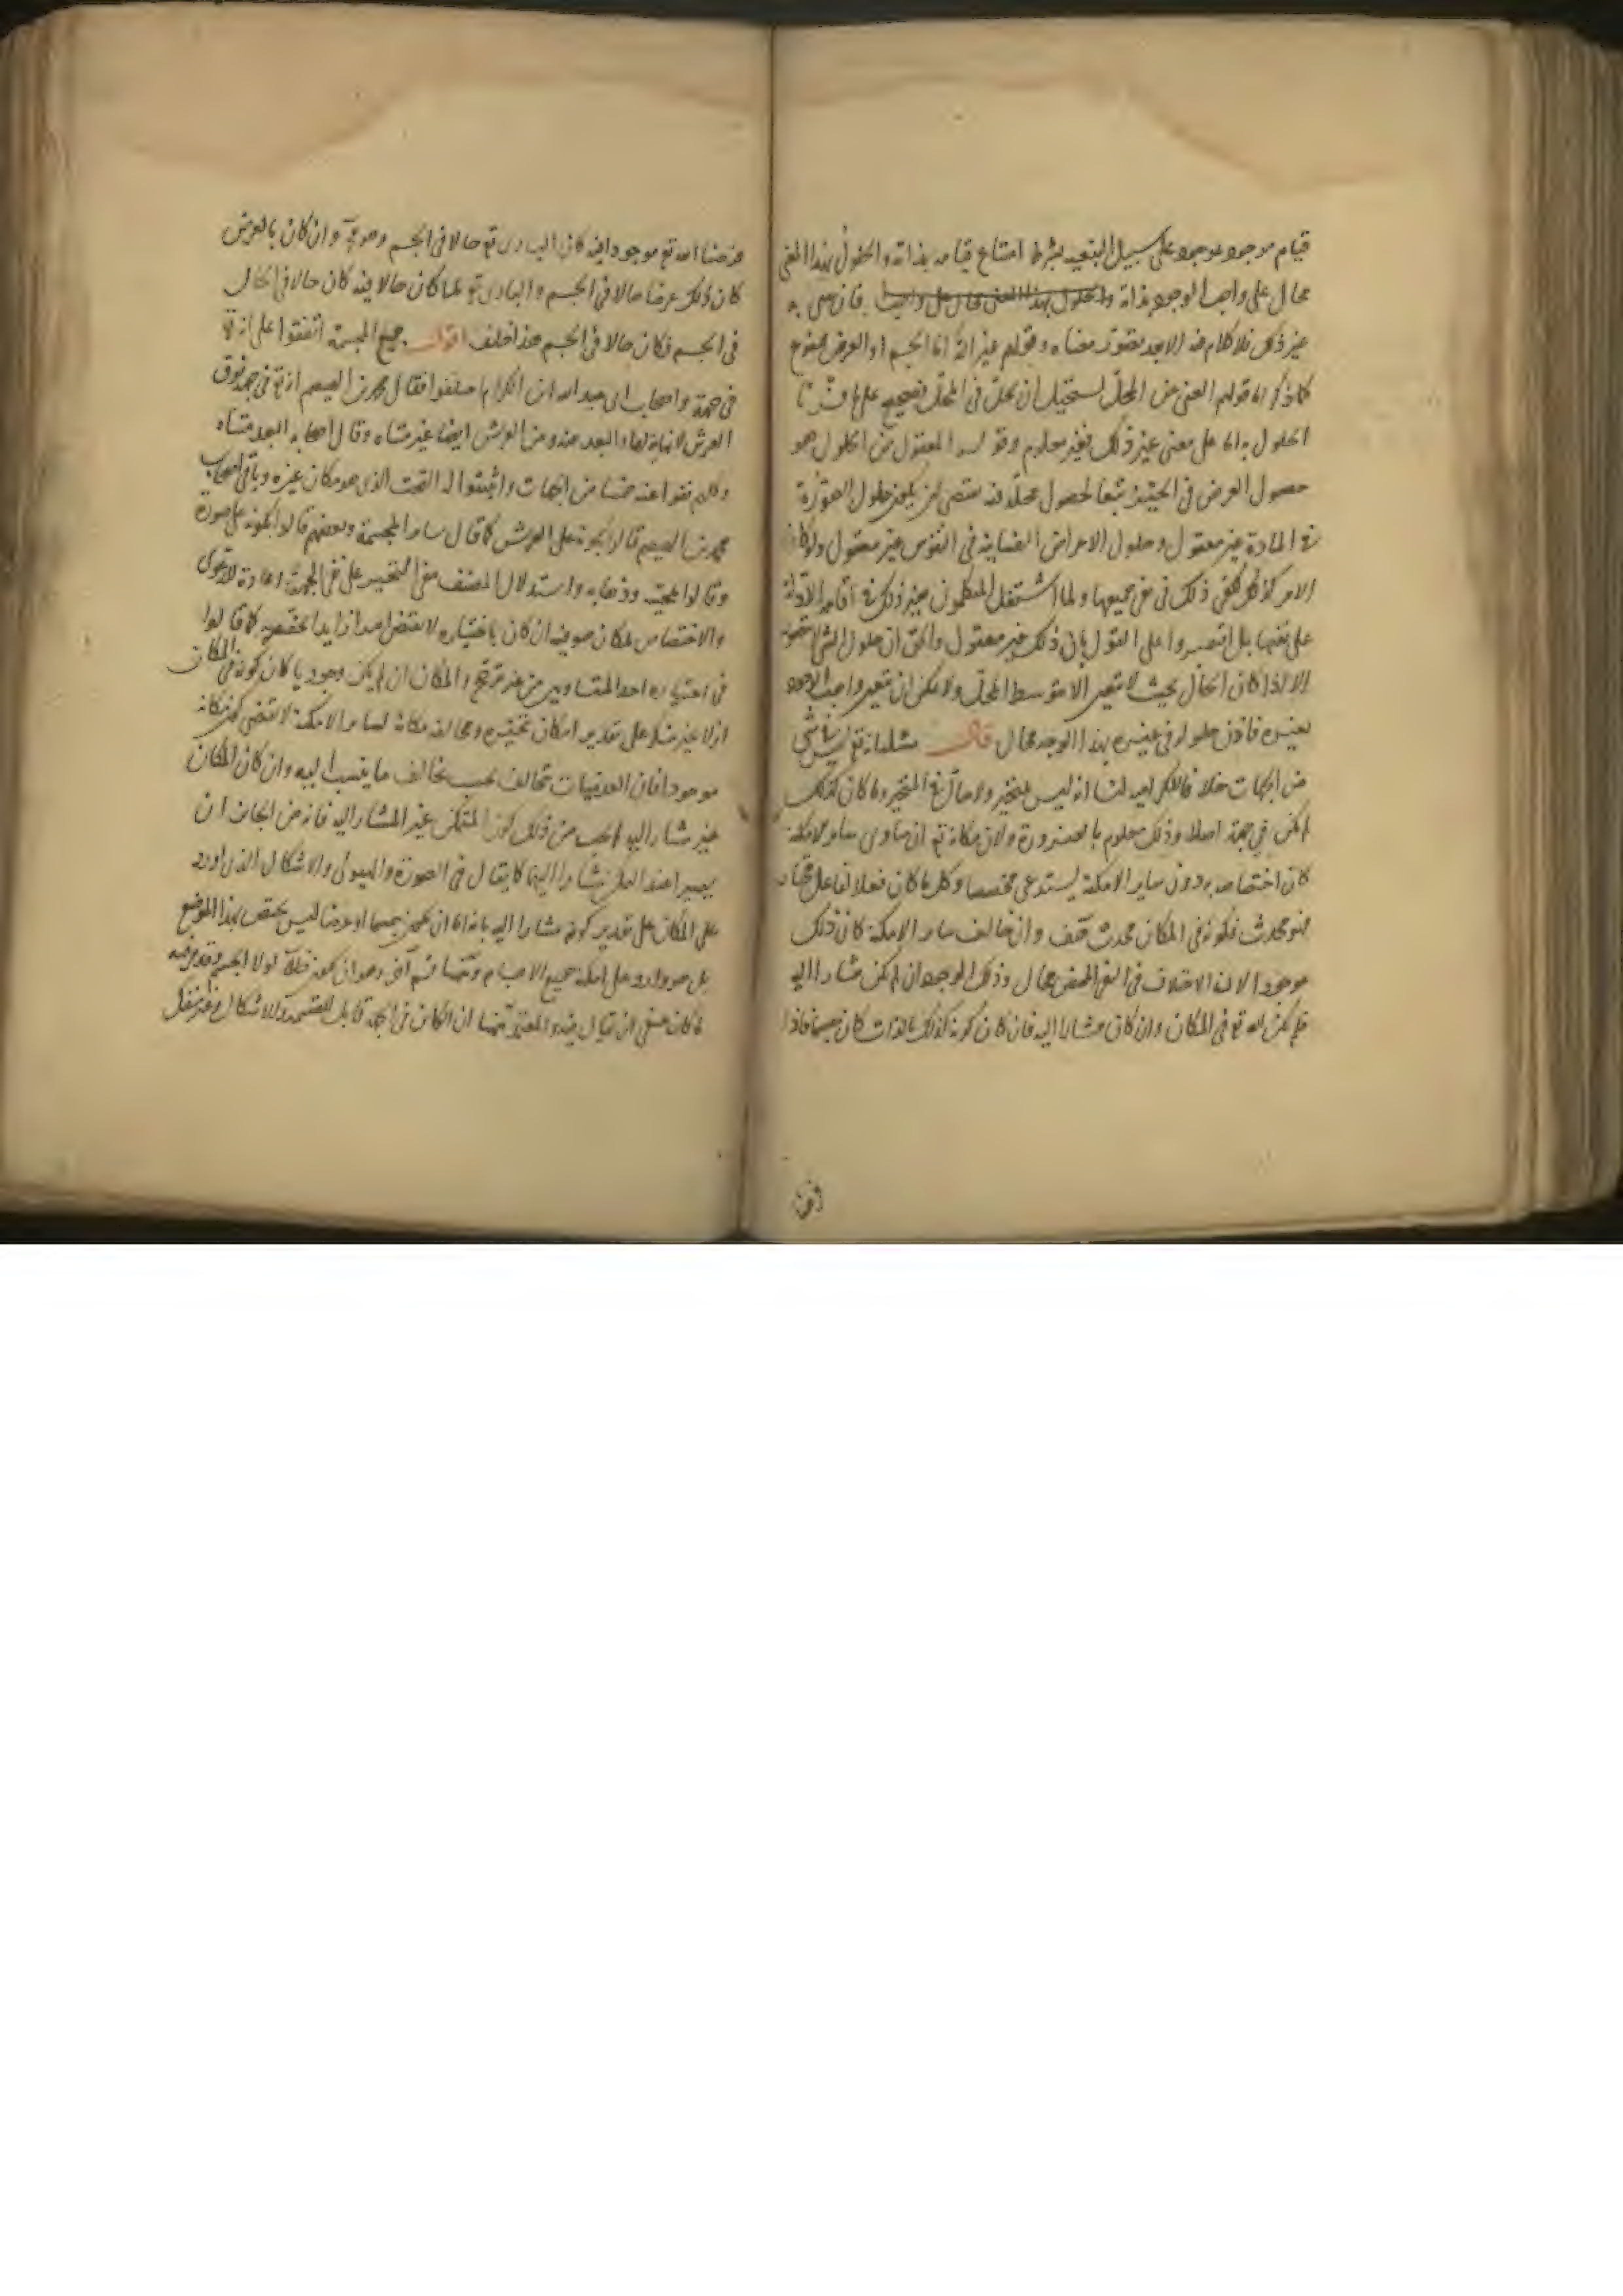 قيام موجود بموجود على سبيل التبعية بشرط امتناع قيامه بذاته والحلول بهذا المعنى
محال على واجب الوجود بذاته والحلول بهذا المعنى محال على واجب فان عنى به
غير ذلك فلا كلام فيه الا بعد تصور معناه وقولهم غير الله اما الجسم او العرض ممنوع
كما ذكر اما قولهم الغنى عن المحل يستحيل ان يحل في المحل فصحيح على ما فسرنا
الحلول به اما على معنى غير ذلك فغير معلوم وقوله المعقول من الحلول هو
حصول العرض في الحيز تبعا لحصول محله فيه يقتضى ان يكون حلول الصورة
في المادة غير معقول وحلول الاعراض النفسانية في النفوس غير معقول ولو كان
الامر كذلك لكفى ذلك في نفى جميعها ولما اشتغل المتكلمون بغير ذلك في اقامة الادلة
على نفيها بل اقتصروا على القول بان ذلك غير معقول والحق ان حلول الشئ لا يتصور
الا اذا كان الحال بحيث لا يتعين الا بتوسط المحل ولا يمكن ان يتعين واجب الوجود
بغيره فاذن حلوله في غيره بهذا الوجه محال قال مسئلة انه تع ليس في شئ
من الجهات خلافا للكرامية لنا انه ليس بمتحيز ولا حال في المتحيز وما كان كذلك
لم يكن في جهة اصلا وذلك معلوم بالضرورة ولان مكانه تع ان ساوى ساير الامكنة
كان اختصاصه به دون ساير الامكنة يستدعى مخصصا وكل ما كان فعلا لفاعل مختار
فهو محدث فكونه في المكان محدث هف وان خالف ساير الامكنة كان ذلك
موجودا لان الاختلاف في النفى المحض محال وذلك الموجود ان لم يكن مشارا اليه
فلم يكن الله تع في المكان وان كان مشارا اليه فان كان كونه كذلك بالذات كان جسما فاذا
فرضنا الله تع موجودا فيه كان البارى تع حالا في الجسم وهو مح وان كان بالعرض
كان ذلك عرضا حالا في الجسم والبارى تع لما كان حالا فيه كان حالا في الحال
في الجسم فكان حالا في الجسم هذا خلف اقول جميع المجسمة اتفقوا على انه تع
في جهة واصحاب ابى عبد الله ابن الكرام اختلفوا فقال محمد بن الهيصم انه تع في جهة فوق
العرش لا نهاية لها والبعد بينه وبين العرش ايضا غير متناه وقال اصحابه البعد متناه
وكلهم نفوا عنه خمسا من الجهات واثبتوا له التحت الذى هو مكان غيره وباقى اصحاب
محمد بن الهيصم قالوا بكونه على العرش كما قال ساير المجسمة وبعضهم قالوا بكونه على صورة
وقالوا بمجيئه وذهابه واستدلال المصنف بنفى التحيز على نفى الجهة اعادة للدعوى
والاختصاص بمكان هو فيه ان كان باختياره لا يقتضى امدا زايدا يخصصه كما قالوا
في اختياره احد المتساويين من غير مرجح والمكان ان لم يكن وجوديا كان كونه في المكان
ازلا غير منكر على تقدير امكان تحيزه ومخالفة مكانه لساير الامكنة لا تقتضى كون مكانه
موجودا فان العدميات تتخالف بحسب تخالف ما ينسب اليه وان كان المكان
غير مشار اليه لم يجب من ذلك كون المتمكن غير المشار اليه فانه من الجائز ان
يصيرا عند التمكن مشارا اليهما كما يقال في الصورة والهيولى والاشكال الذى اورد
على المكان على تقدير كونه مشارا اليه بانه اما ان يكون جسما او عرضا ليس يختص بهذا الموضع
بل هو وارد على امكنة جميع الاجسام وههنا قسم آخر وهو ان يكون خلاء لولا الجسم
لما كان ينبغى ان يقال فيه والمعتمد ههنا ان الكائن في الجهة قابل للقسمة والاشكال